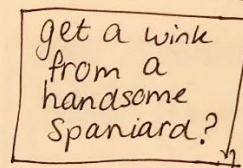 get a wink
from a
handsome
Spaniard?